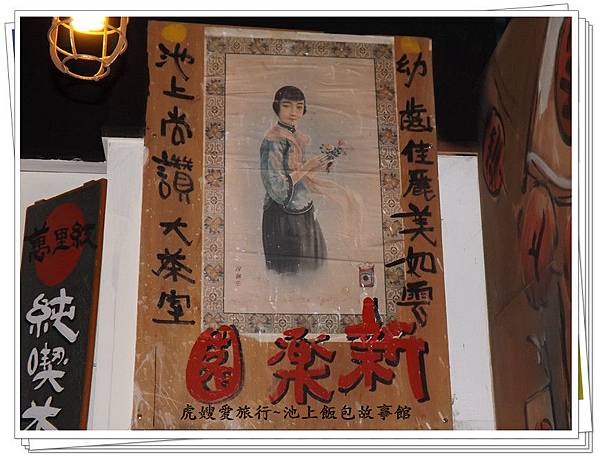 幼齒佳麗美如雲
池上尚讚大茶室
新樂園
萬里紅
純喫茶
虎嫂愛旅行~池上飯包故事館